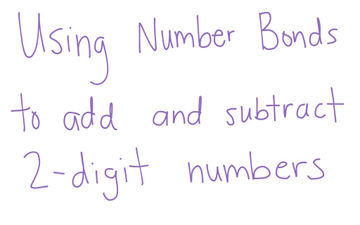 Using Number Bonds
to add and subtract
2-digit numbers